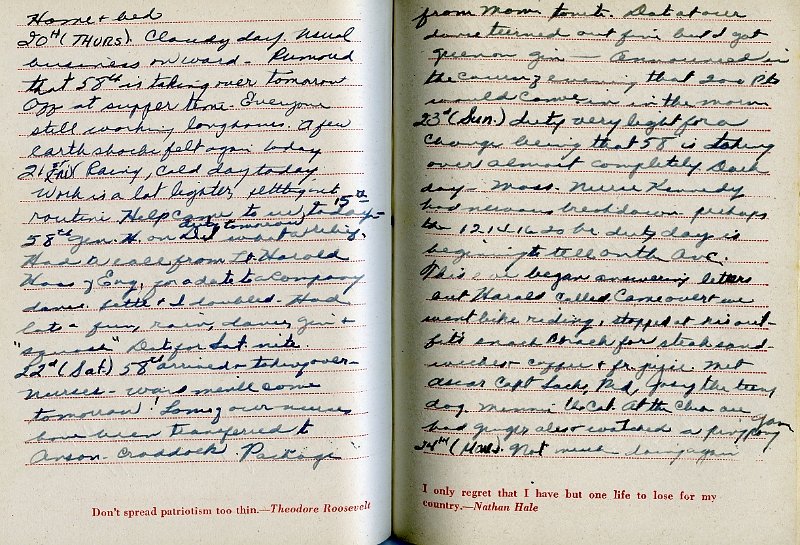 Home & bed
20th (THURS). Cloudy day. Usual
business on ward - Rumored
that 58th is taking over tomorrow
Off at supper time. Everyone
still working long hours. A few
earth shocks felt again today
21st Fri Rainy, cold day today
Work is a lot lighter, getting out
routine. Help came to us, today - 15th
58th Gen. H. on duty tomorrow
Had a call from Lt. Harold
Haas of Eng, for a date to a company
dance. Lette & I doubled. Had
lots of fun, rain, dance, gin &
"squash" Date for Sat. nite.
22d (Sat) 58th arrived & taking over -
nurses - ward men'll come
tomorrow! Some of our nurses
have been transferred to
Anson - Craddock. Package
from Mom tonite. Date at our
dance turned out fine but I got
green on gin - Announced in
the evening that 200 Pts
would come in in the morn
23d (Sun.) duty very light for a
change being that 58 is taking
over almost completely. Dark
day - Mass. Nurse Kennedy
had nervous breakdown perhaps
the 12 14 16 20 hr duty day is
beginning to tell on the ANC.
This eve began answering letters
but Harold called. Came over & we
went bike riding, stopped at his out-
fit's snack shack for steak sand
wiches & coffee & fr. juice. Met
Oscar Capt Sack, Red, Joey the teeny
dog. Minnie the Cat. At the Club we
had ginger ale & watched a ping pong game
24th (Mon). Not much doing again
Don't spread patriotism too thin.—Theodore Roosevelt
I only regret that I have but one life to lose for my
country.—Nathan Hale